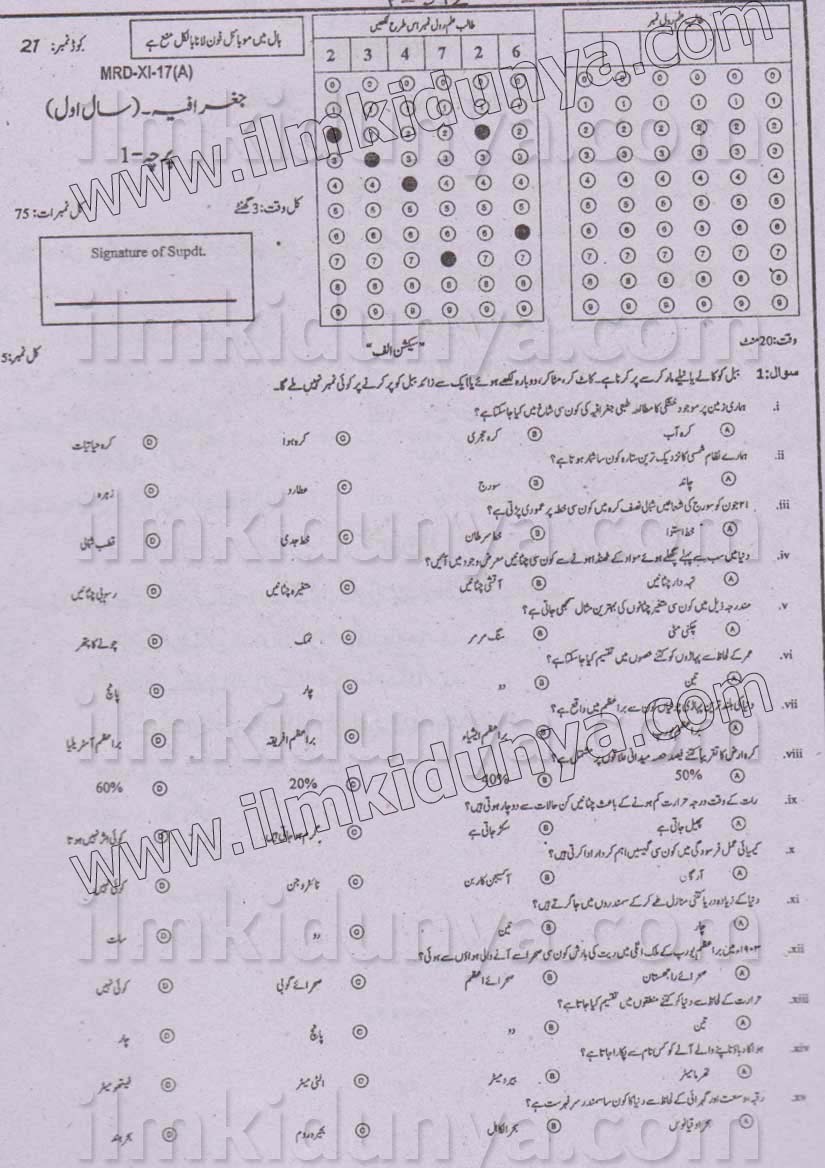 ہال میں موبائل فون لانا بالکل منع ہے
کوڈ نمبر: 27
MRD-XI-17(A)
جغرافیہ۔(سال اول)
پرچہ-1
کل وقت: 3 گھنٹے
کل نمبرات: 75
Signature of Supdt.
طالب علم رول نمبر اس طرح لکھیں
2 3 4 7 2 6
وقت: 20 منٹ
"سیکشن الف"
کل نمبر: 5
سوال:1 ببل کو کالے یا نیلے مارکر سے پر کرنا ہے۔ کاٹ کر، مٹا کر، دوبارہ لکھے ہوئے یا ایک سے زائد ببل کو پر کرنے پر کوئی نمبر نہیں ملے گا۔
i. ہماری زمین پر موجود خشکی کا مطالعہ طبعی جغرافیہ کی کون سی شاخ میں کیا جاسکتا ہے؟
A کرہ آب B کرہ حجری C کرہ ہوا D کرہ حیاتیات
ii. ہمارے نظام شمسی کا نزدیک ترین ستارہ کون سا شمار ہوتا ہے؟
A چاند B سورج C عطارد D زہرہ
iii. ۲۱ جون کو سورج کی شعاعیں شمالی نصف کرہ میں کون سی خطہ پر عمودی پڑتی ہے؟
A خط استوا B خط سرطان C خط جدی D قطب شمالی
iv. دنیا میں سب سے پہلے پگھلے ہوئے مواد کے ٹھنڈا ہونے سے کون سی چٹانیں معرض وجود میں آئیں؟
A تہہ دار چٹانیں B آتشی چٹانیں C متغیرہ چٹانیں D رسوبی چٹانیں
v. مندرجہ ذیل میں کون سی متغیر چٹانوں کی بہترین مثال سمجھی جاتی ہے؟
A چکنی مٹی B سنگ مرمر C نمک D چونے کا پتھر
vi. عمر کے لحاظ سے پہاڑوں کو کتنے حصوں میں تقسیم کیا جاسکتا ہے؟
A تین B دو C چار D پانچ
vii. دنیا کی بلند ترین پہاڑی چوٹیاں کون سے براعظم میں واقع ہے؟
A B براعظم ایشیاء C براعظم افریقہ D براعظم آسٹریلیا
viii. کرہ ارض کا تقریباً کتنے فیصد حصہ میدانی علاقوں پر مشتمل ہے؟
A 50% B 40% C 20% D 60%
ix. رات کے وقت درجہ حرارت کم ہونے کے باعث چٹانیں کن حالات سے دوچار ہوتی ہیں؟
A پھیل جاتی ہے B سکڑ جاتی ہے C گرم ہوجاتی ہیں D کوئی اثر نہیں ہوتا
x. کیمیائی عمل فرسودگی میں کون سی گیسیں اہم کردار ادا کرتی ہیں؟
A آرگان B آکسیجن کاربن C نائٹروجن D کوئی نہیں
xi. دنیا کے زیادہ دریا کتنی منازل طے کر کے سمندروں میں جا گرتے ہیں؟
A چار B تین C دو D سات
xii. ۱۹۰۳ء میں براعظم یورپ کے ملک اٹلی میں ریت کی بارش کون سی صحرا سے آنے والی ہواؤں سے ہوئی؟
A صحرائے راجھستان B صحرائے اعظم C صحرائے گوبی D کوئی نہیں
xiii. حرارت کے لحاظ سے دنیا کو کتنے منطقوں میں تقسیم کیا جاتا ہے؟
A تین B دو C پانچ D چار
xiv. ہوا کا دباؤ ناپنے والے آلے کو کس نام سے پکارا جاتا ہے؟
A تھرمامیٹر B بیرومیٹر C الٹی میٹر D فیتھومیٹر
xv. رقبہ، وسعت اور گہرائی کے لحاظ سے دنیا کا کون سا سمندر سرفہرست ہے؟
A بحر اوقیانوس B بحر الکاہل C بحیرہ روم D بحر ہند
www.ilmkidunya.com
www.ilmkidunya.com
ilmkidunya.com